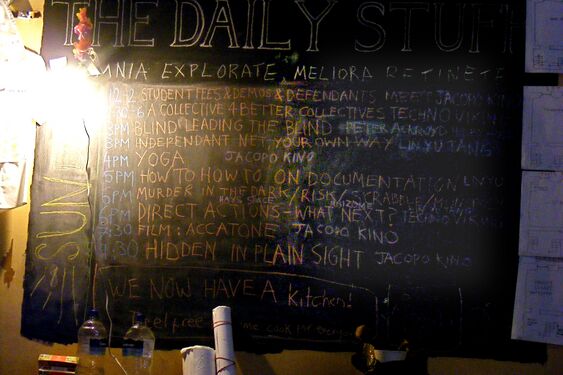 THE DAILY STUFF
OMNIA EXPLORATE, MELIORA RETINETE
12-2 STUDENT FEES & DEMOS & DEFENDANTS MEET JACOPO KINO
A COLLECTIVE 4 BETTER COLLECTIVES TECHNO VIKING
3PM BLIND LEADING THE BLIND PETER ACKROYD
3PM INDEPENDANT NET, YOUR OWN WAY LIN YU TANG
4PM YOGA JACOPO KINO
5PM HOW TO HOW TO ON DOCUMENTATION LIN YU
5PM MURDER IN THE DARK/RISK/SCRABBLE/
6PM DIRECT ACTIONS - WHAT NEXT? TECHNO VIKING
7:30 FILM: ACCATONE JACOPO KINO
9:30 HIDDEN IN PLAIN SIGHT JACOPO KINO
SUNS
WE NOW HAVE A kitchen!
feel free cook for everyone